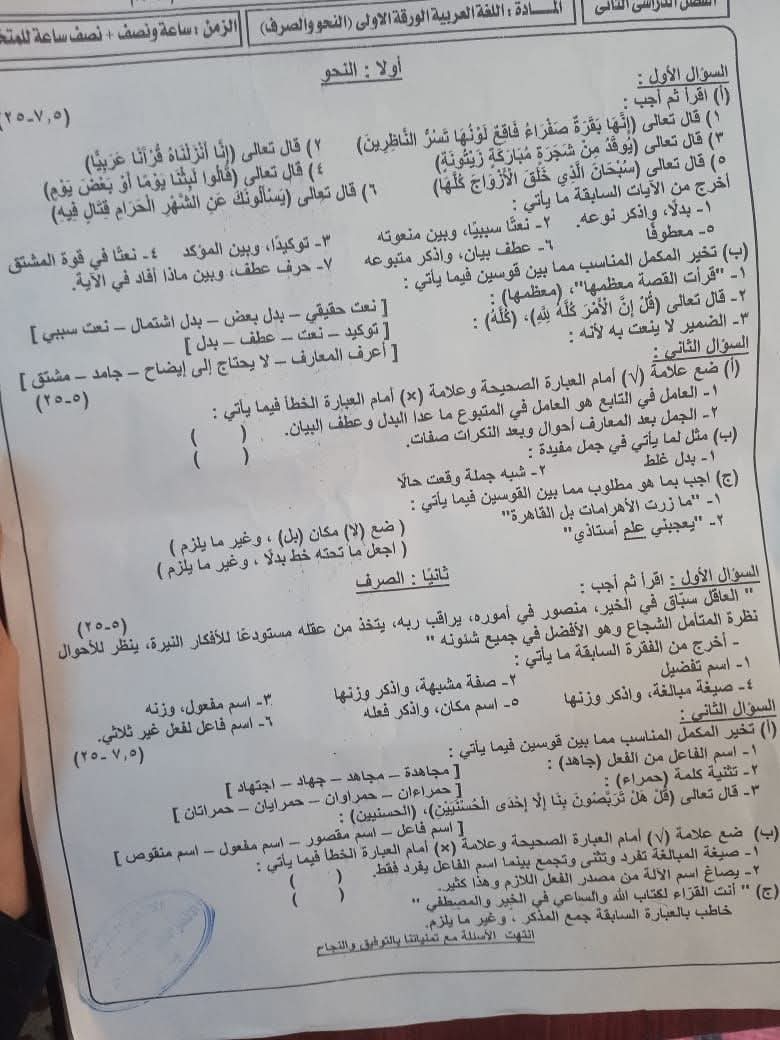 الفصل الدراسى الثانى
المـــادة : اللغة العربية الورقة الاولى (النحو والصرف)
الزمن : ساعة ونصف + نصف ساعة
أولا : النحو
السؤال الأول :
(٧,٥-٢٥)
(أ) اقرأ ثم أجب :
١) قال تعالى (إِنَّهَا بَقَرَةٌ صَفْرَاءُ فَاقِعٌ لَوْنُهَا تَسُرُّ النَّاظِرِينَ)
٢) قال تعالى (إِنَّا أَنْزَلْنَاهُ قُرْآنًا عَرَبِيًّا)
٣) قال تعالى (يُوقَدُ مِنْ شَجَرَةٍ مُبَارَكَةٍ زَيْتُونَةٍ)
٤) قال تعالى (قَالُوا لَبِثْنَا يَوْمًا أَوْ بَعْضَ يَوْمٍ)
٥) قال تعالى (سُبْحَانَ الَّذِي خَلَقَ الْأَزْوَاجَ كُلَّهَا)
٦) قال تعالى (يَسْأَلُونَكَ عَنِ الشَّهْرِ الْحَرَامِ قِتَالٍ فِيهِ)
أخرج من الآيات السابقة ما يأتي :
١- بدلًا، واذكر نوعه. ٢- نعتًا سببيًا، وبين منعوته ٣- توكيدًا، وبين المؤكد ٤- نعتًا في قوة المشتق
٥- معطوفًا ٦- عطف بيان، واذكر متبوعه ٧- حرف عطف، وبين ماذا أفاد في الآية.
(ب) تخير المكمل المناسب مما بين قوسين فيما يأتي :
١- "قرأت القصة معظمها"، (معظمها) : [ نعت حقيقي – بدل بعض – بدل اشتمال – نعت سببي ]
٢- قال تعالى (قُلْ إِنَّ الْأَمْرَ كُلَّهُ لِلَّهِ)، (كُلَّهُ) : [ توكيد – نعت – عطف – بدل ]
٣- الضمير لا ينعت به لأنه : [ أعرف المعارف – لا يحتاج إلى إيضاح – جامد – مشتق ]
السؤال الثاني :
(٥-٢٥)
(أ) ضع علامة (√) أمام العبارة الصحيحة وعلامة (×) أمام العبارة الخطأ فيما يأتي :
١- العامل في التابع هو العامل في المتبوع ما عدا البدل وعطف البيان. ( )
٢- الجمل بعد المعارف أحوال وبعد النكرات صفات. ( )
(ب) مثل لما يأتي في جمل مفيدة :
١- بدل غلط ٢- شبه جملة وقعت حالًا
(ج) اجب بما هو مطلوب مما بين القوسين فيما يأتي :
١- "ما زرت الأهرامات بل القاهرة" ( ضع (لا) مكان (بل) ، وغير ما يلزم )
٢- "يعجبني علم أستاذي" ( اجعل ما تحته خط بدلًا ، وغير ما يلزم )
ثانيًا : الصرف
السؤال الأول : اقرأ ثم أجب :
(٥-٢٥)
" العاقل سبّاق في الخير، منصور في أموره، يراقب ربه، يتخذ من عقله مستودعًا للأفكار النيرة، ينظر للأحوال
نظرة المتأمل الشجاع وهو الأفضل في جميع شئونه "
- أخرج من الفقرة السابقة ما يأتي :
١- اسم تفضيل ٢- صفة مشبهة، واذكر وزنها ٣- اسم مفعول، وزنه
٤- صيغة مبالغة، واذكر وزنها ٥- اسم مكان، واذكر فعله ٦- اسم فاعل لفعل غير ثلاثي.
السؤال الثاني :
(٧,٥-٢٥)
(أ) تخير المكمل المناسب مما بين قوسين فيما يأتي :
١- اسم الفاعل من الفعل (جاهد) : [ مجاهدة – مجاهد – جهاد – اجتهاد ]
٢- تثنية كلمة (حمراء) : [ حمراءان – حمراوان – حمرايان – حمراتان ]
٣- قال تعالى (قُلْ هَلْ تَرَبَّصُونَ بِنَا إِلَّا إِحْدَى الْحُسْنَيَيْنِ)، (الحسنيين) :
[ اسم فاعل – اسم مقصور – اسم مفعول – اسم منقوص ]
(ب) ضع علامة (√) أمام العبارة الصحيحة وعلامة (×) أمام العبارة الخطأ فيما يأتي :
١- صيغة المبالغة تفرد وتثنى وتجمع بينما اسم الفاعل يفرد فقط. ( )
٢- يصاغ اسم الآلة من مصدر الفعل اللازم وهذا كثير. ( )
(ج) " أنت القرّاء لكتاب الله والساعي في الخير والمصطفي "
خاطب بالعبارة السابقة جمع المذكر ، وغير ما يلزم.
انتهت الأسئلة مع تمنياتنا بالتوفيق والنجاح